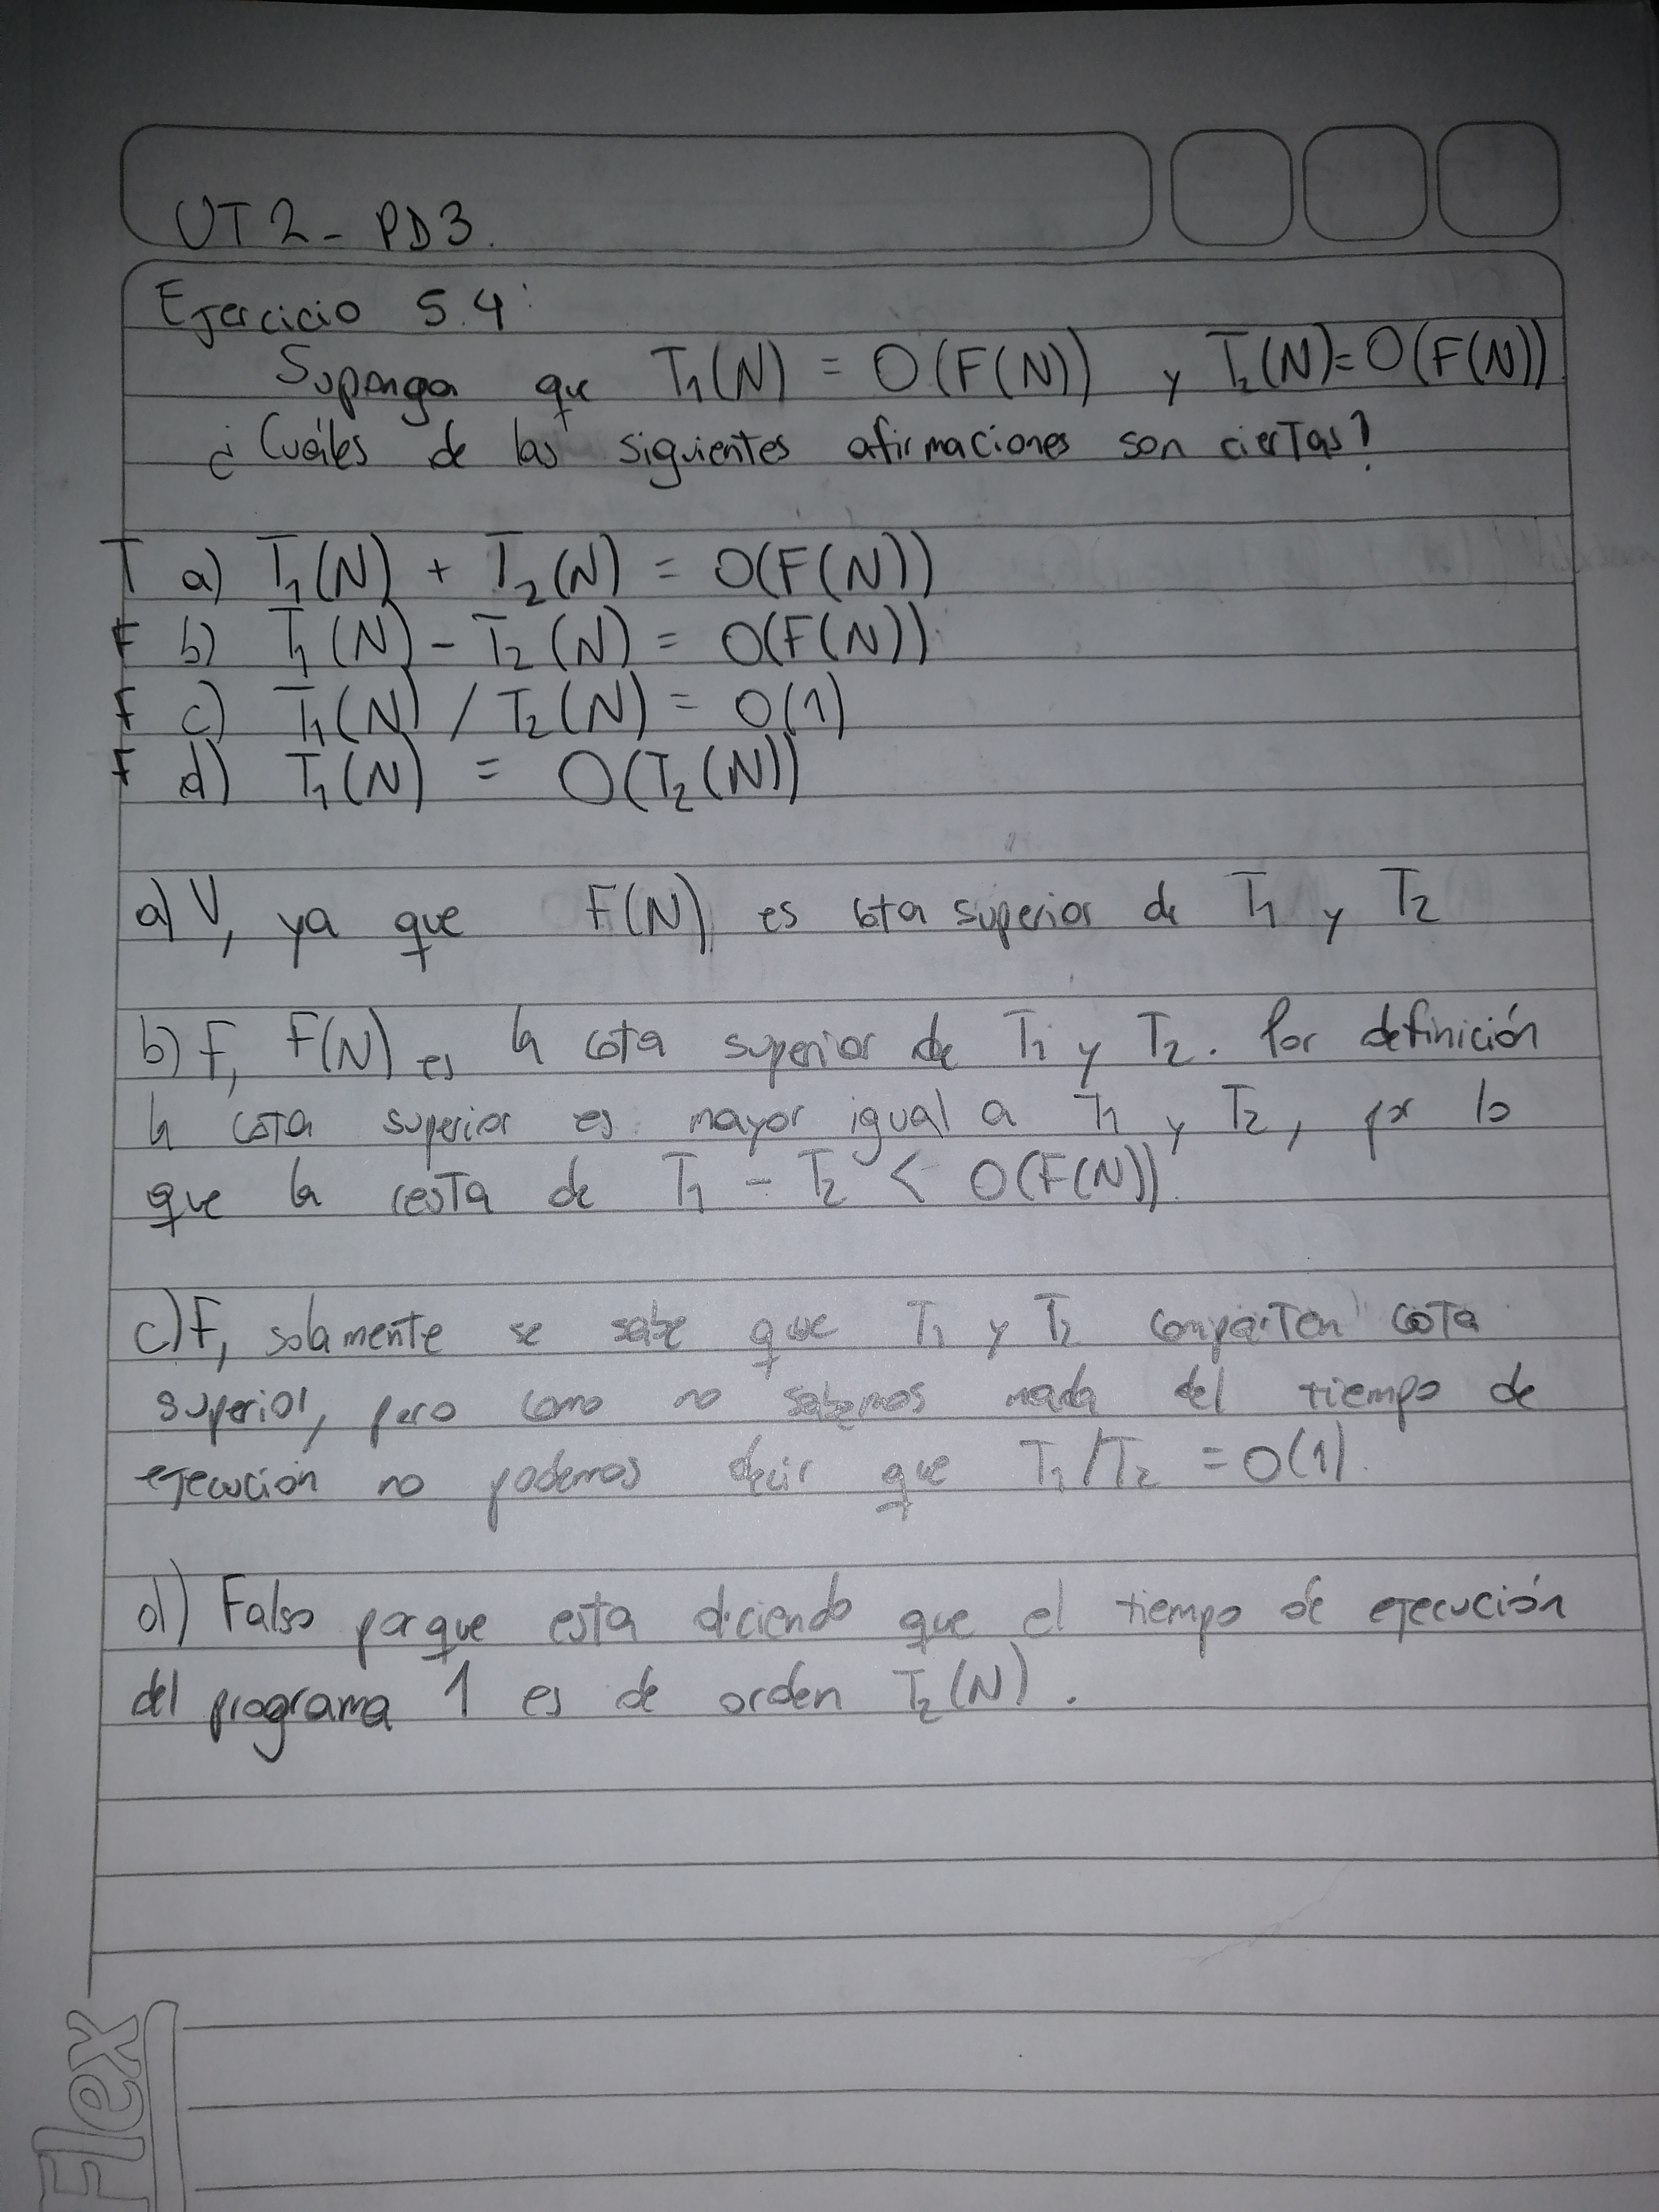 UT2- PD3.
Ejercicio 5.4:
Suponga que T₁(N) = O(F(N)) y T₂(N)=O(F(N))
¿Cuáles de las siguientes afirmaciones son ciertas?
T a) T₁(N) + T₂(N) = O(F(N))
F b) T₁(N) - T₂(N) = O(F(N))
F c) T₁(N) / T₂(N) = O(1)
F d) T₁(N) = O(T₂(N))
a) V, ya que F(N) es cota superior de T₁ y T₂
b) F, F(N) es la cota superior de T₁ y T₂. Por definición
la cota superior es mayor igual a T₁ y T₂, por lo
que la resta de T₁ - T₂ < O(F(N)).
c) F, solamente se sabe que T₁ y T₂ comparten cota
superior, pero como no sabemos nada del tiempo de
ejecución no podemos decir que T₁/T₂ = O(1).
d) Falso porque esta diciendo que el tiempo de ejecución
del programa 1 es de orden T₂(N).
Flex